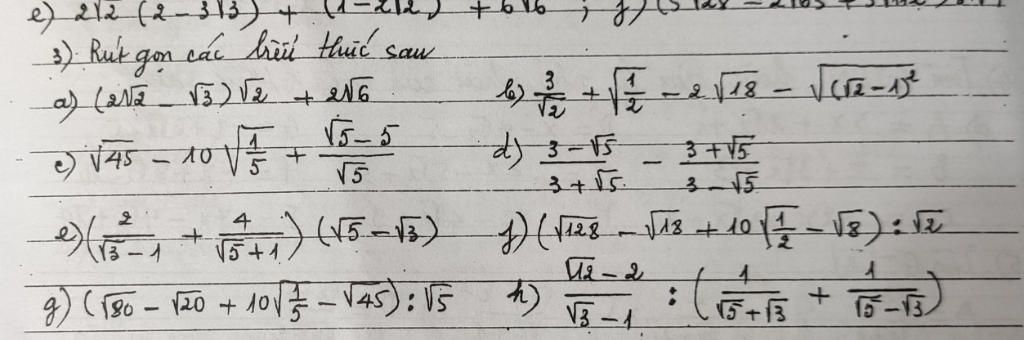 e) 2√2 (2 - 3√3) + (1 - 2√2) + 6√6 ; f)
3) Rút gọn các biểu thức sau
a) (2√2 - √3)√2 + 2√6 b) 3/√2 + √(1/2) - 2√18 - √((√2 - 1)²)
c) √45 - 10√(1/5) + (√5 - 5)/√5 d) (3 - √5)/(3 + √5) - (3 + √5)/(3 - √5)
e) (2/(√3 - 1) + 4/(√5 + 1)) (√5 - √3) f) (√128 - √18 + 10√(1/2) - √8) : √2
g) (√80 - √20 + 10√(1/5) - √45) : √5 h) (√12 - 2)/(√3 - 1) : (1/(√5 + √3) + 1/(√5 - √3))